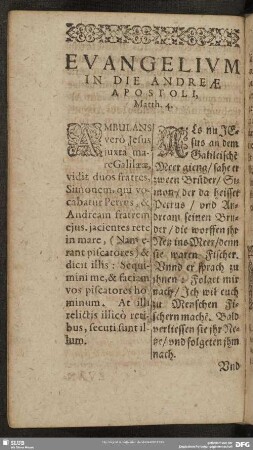 EVANGELIVM
IN DIE ANDREÆ
APOSTOLI,
Matth. 4.
AMBULANS
vero Jesus
juxta ma-
re Galilææ,
vidit duos fratres,
Simonem, qui vo-
cabatur Petrus, &
Andream fratrem
ejus, jacientes rete
in mare, (Nam e-
rant piscatores) &
dicit illis: Sequi-
mini me, & faciam
vos piscatores ho-
minum. At illi
relictis illicò reti-
bus, secuti sunt il-
lum.
ALs nu JE-
sus an dem
Galileische
Meer gieng / sahe er
zween Brüder / Si-
mon / der da heisset
Petrus / und An-
dream seinen Bru-
der / die worffen ihr
Netz ins Meer / denn
sie waren Fischer.
Vnnd er sprach zu
ihnen: Folget mir
nach / Ich wil euch
zu Menschen Fi-
schern machē. Bald
verliessen sie ihr Ne-
tze / und folgeten ihm
nach.
Vnd
SLUB
DFG